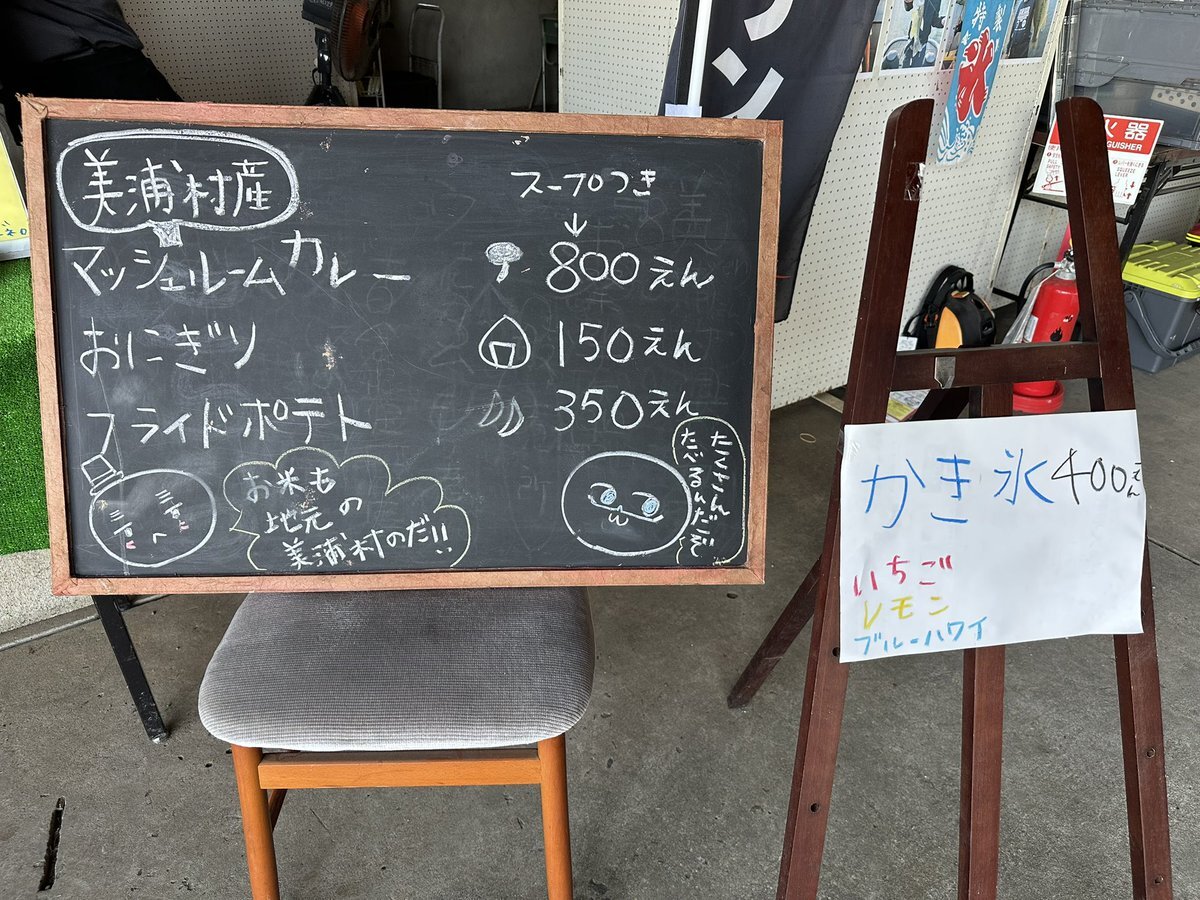 美浦村産
スープつき
↓
マッシュルームカレー 800えん
おにぎり 150えん
フライドポテト 350えん
お米も
地元の
美浦村のだ!!
たくさん
たべるんだごぞ
かき氷400えん
いちご
レモン
ブルーハワイ
特製
火器
GUISHER